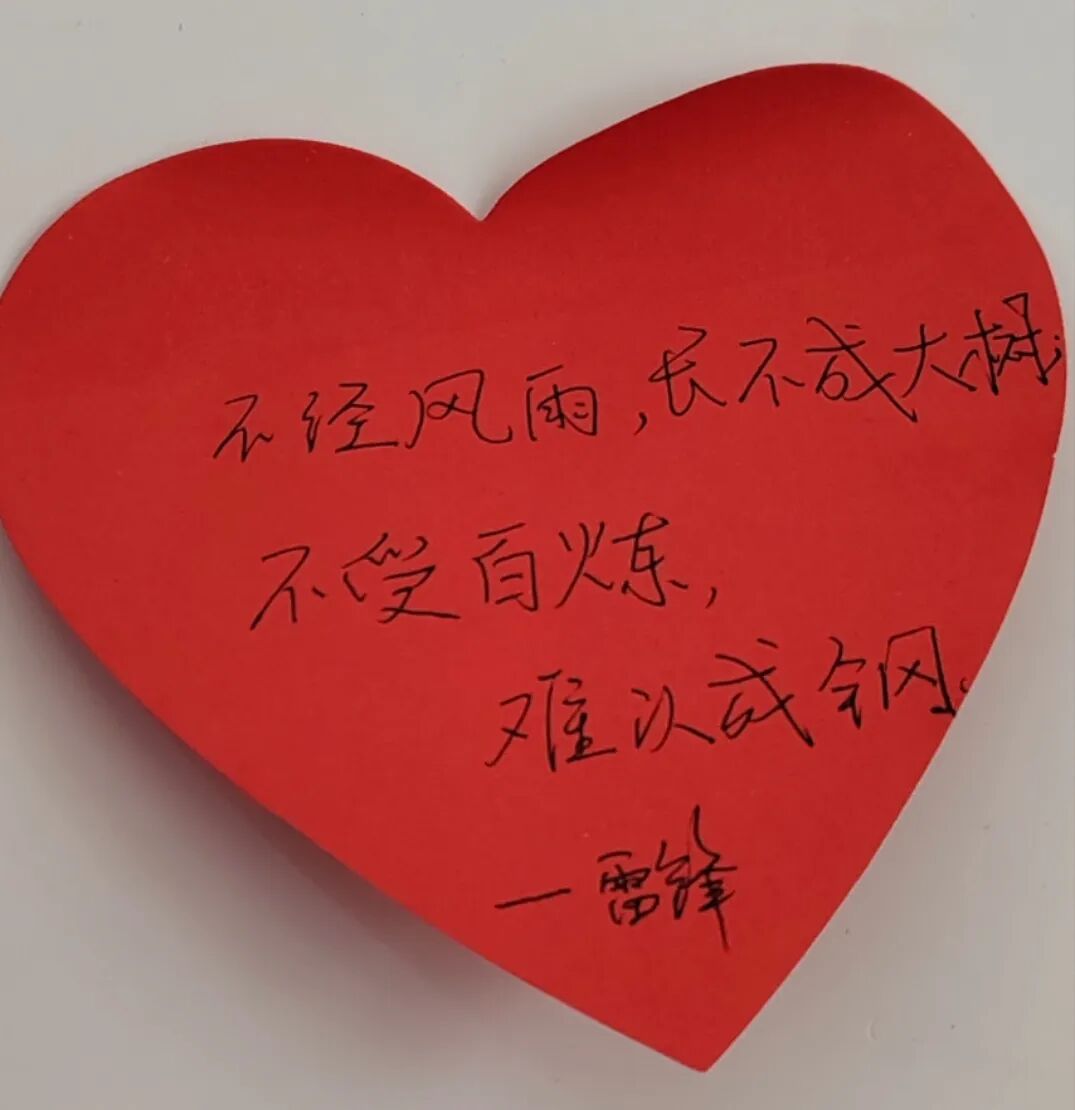 不经风雨,长不成大树;
不受百炼,
难以成钢。
—雷锋